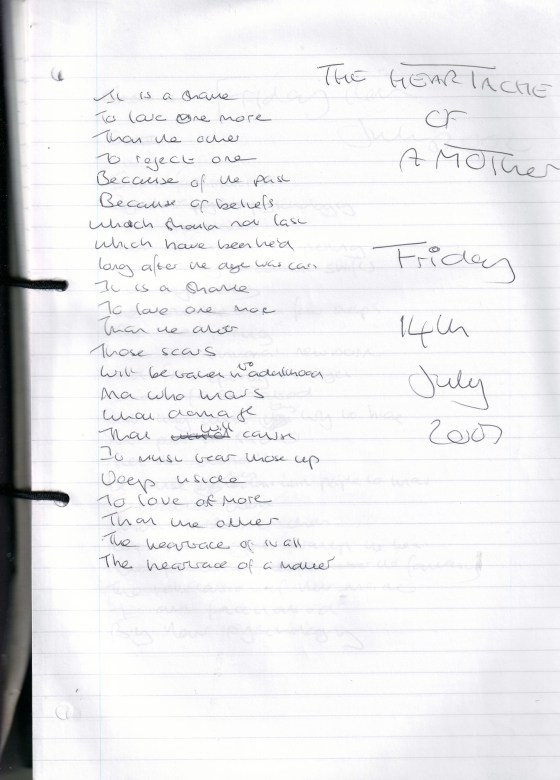 THE HEARTACHE
OF
A MOTHER
Friday
14th
July
2007
It is a shame
To love one more
Than the other
To reject one
Because of the past
Because of beliefs
which should not last
which have been held
long after the age was
It is a shame
To love one more
Than the other
Those scars
will be taken into adulthood
And who knows
what damage
That will cause
To must bear those up
Deep inside
To love one more
Than the other
The heartache of it all
The heartache of a mother